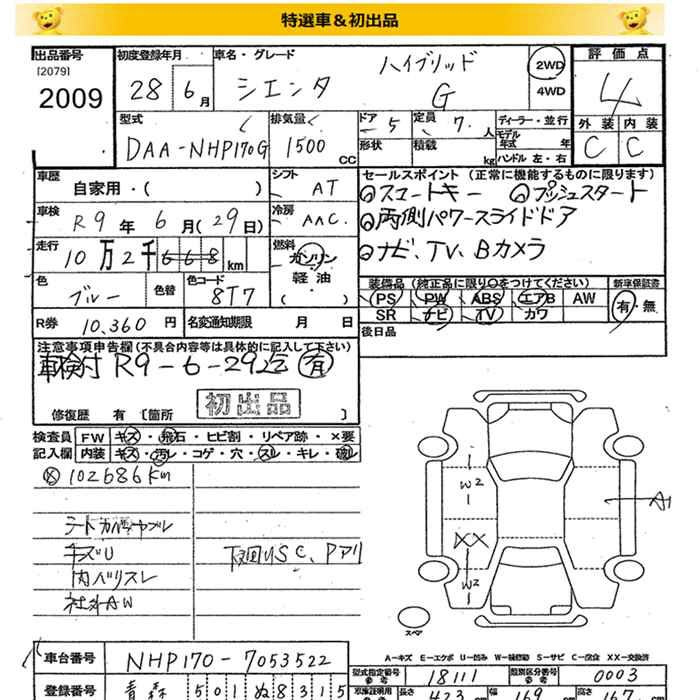 特選車&初出品
出品番号
[2079]
2009
初度登録年月
28 6月
車名・グレード
シエンタ
ハイブリッド
G
2WD
4WD
評価点
4
外装 内装
C C
型式
DAA-NHP170G
排気量
1500 CC
ドア 5
形状
定員 7. 人
積載 kg
ディーラー・並行
モデル年式 年
ハンドル 左・右
車歴
自家用・( )
シフト
AT
車検
R9年 6月(29日)
冷房
AAC.
走行
10万2千668km
燃料
ガソリン
軽油
色
ブルー
色替
色コード
8T7
R券 10,360 円
名変通知期限 月 日
セールスポイント (正常に機能するものに限ります)
スマートキー プッシュスタート
両側パワースライドドア
ナビ、TV、Bカメラ
装備品(純正品に限り○をつけてください)
PS PW ABS エアB AW
SR ナビ TV カワ
新車保証書
有・無
後日品
注意事項申告欄(不具合内容等は具体的に記入して下さい)
車検付 R9-6-29迄 有
初出品
修復歴 有[箇所 ]
検査員 FW キズ・飛石・ヒビ割・リペア跡・×要
記入欄 内装 キズ・汚レ・コゲ・穴・スレ・キレ・破レ
102686Km
シートカバーヤブレ
キズU
内ハリスレ
社外AW
下回りSC、Pアリ
W2
XX
W2
A1
スペア
A-キズ E-エクボ U-凹み W-補修跡 S-サビ C-腐食 XX-交換済
車台番号
NHP170-7053522
型式指定番号
18111
類別区分番号
0003
登録番号
青森 501 ぬ8315
長さ 423 cm
幅 169 cm
高さ 167